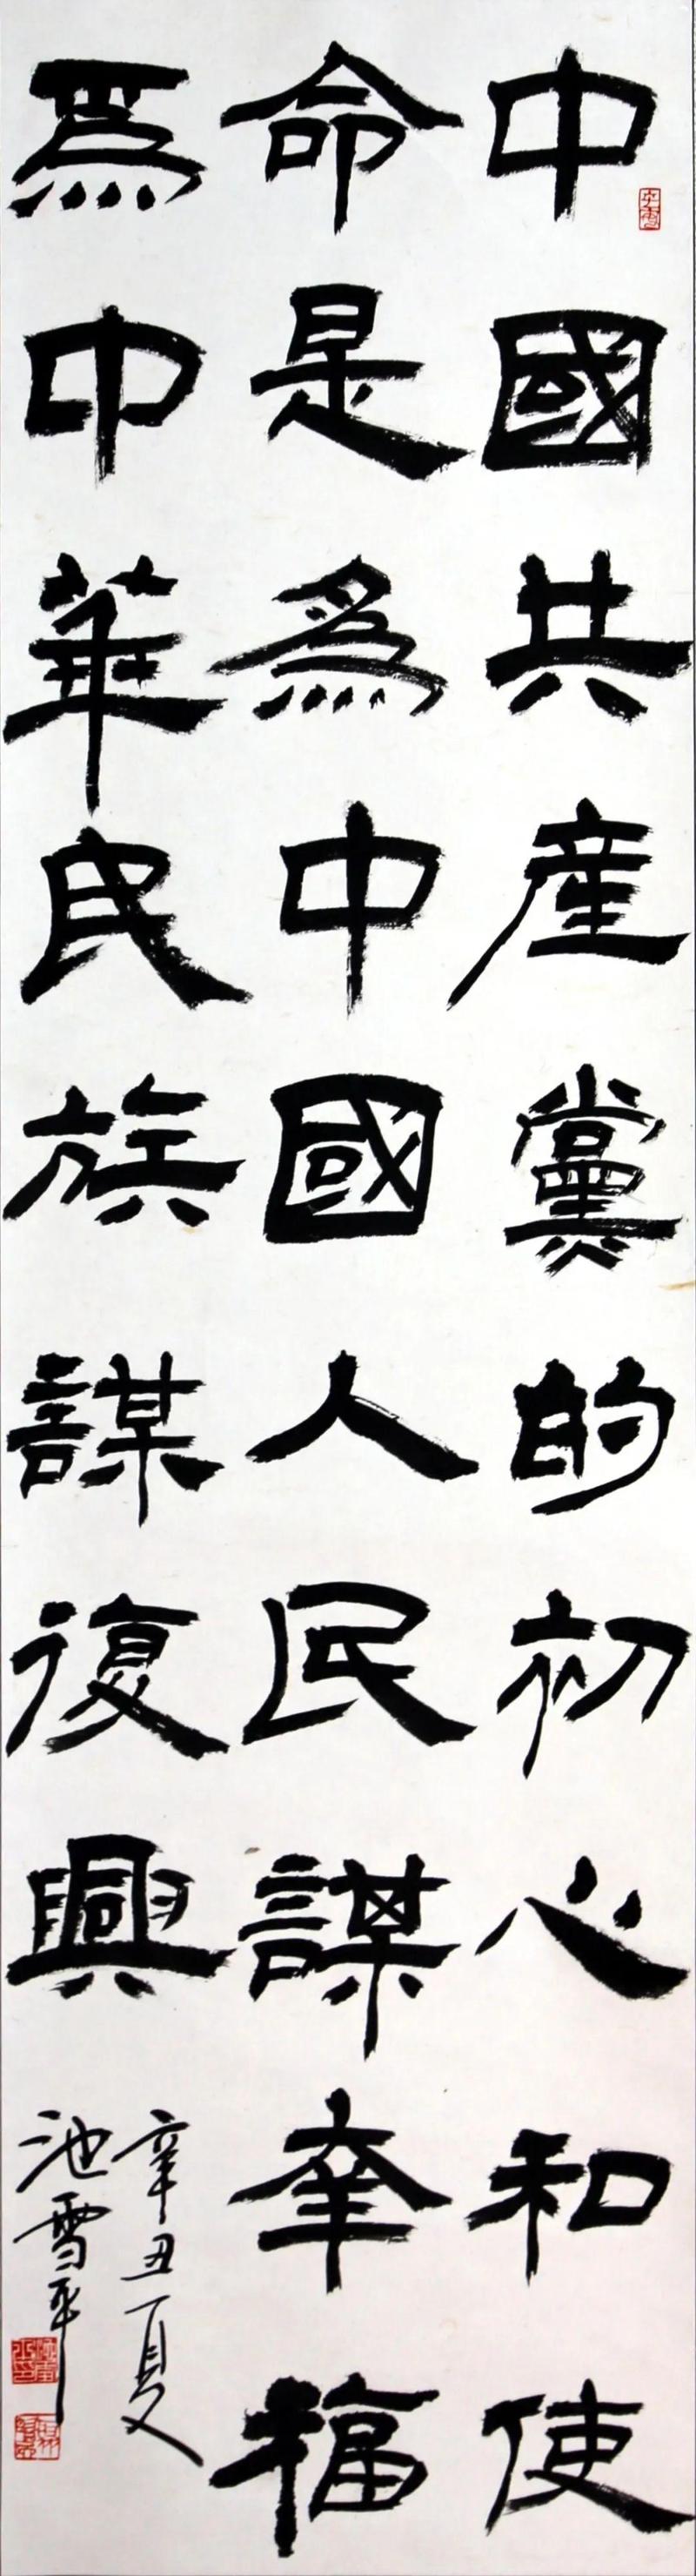 中國共產黨的初心和使
命是為中國人民謀幸福
為中華民族謀復興
辛丑夏
池雪平